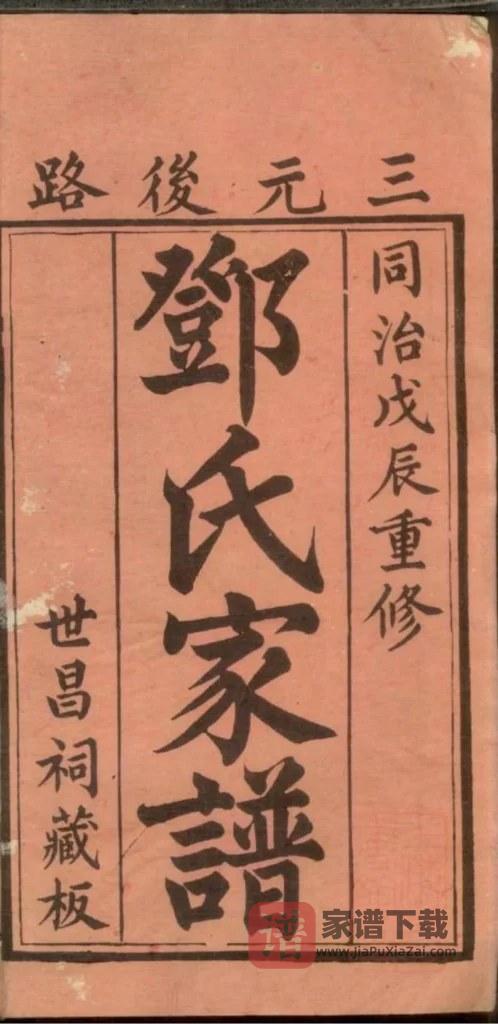 三元後路
同治戊辰重修
鄧氏家譜
世昌祠藏板
谱
家谱下载
www.JiaPuXiaZai.com